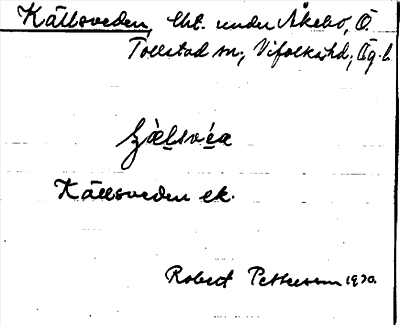 Källsveden, lht. under Åkebo, Ö.
Tollstad sn, Vifolka hd, Ög. l.
Källsveden ek.
Robert Pettersson 1930.